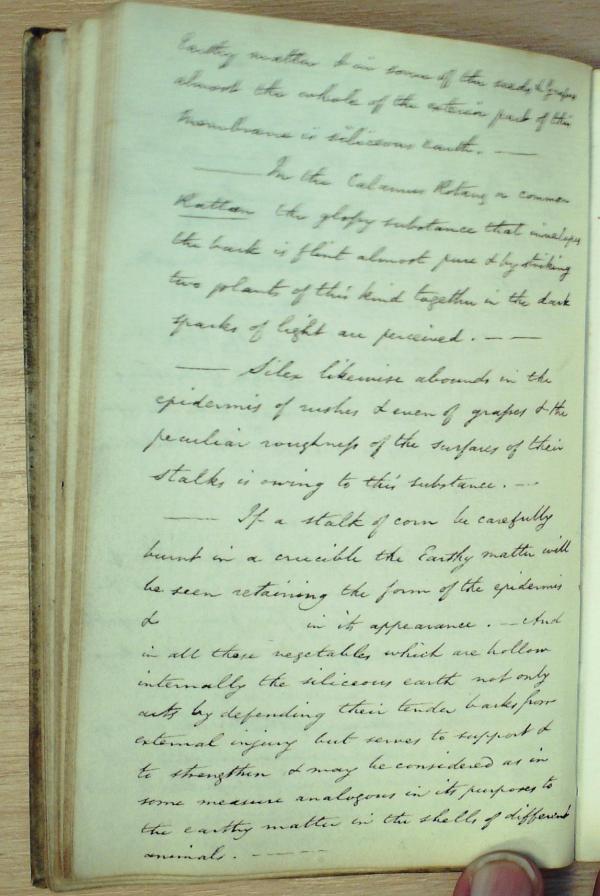 Earthy matter & in some of the reeds & Grapes
almost the whole of the exterior part of this
Membrane is siliceous earth. —
— In the Calamus Rotang or common
Rattan the glossy substance that invelopes
the bark is flint almost pure & by striking
two polants of this kind together in the dark
sparks of light are perceived. — —
— Silex likewise abounds in the
epidermis of rushes & even of grasses & the
peculiar roughness of the surfaces of their
stalks is owing to this substance. —
— If a stalk of corn be carefully
burnt in a crucible the Earthy matter will
be seen retaining the form of the epidermis
& in its appearance. — And
in all these vegetables which are hollow
internally the siliceous earth not only
acts by defending their tender barks from
external injury but serves to support &
to strengthen & may be considered as in
some measure analogous in its purposes to
the earthy matter in the shells of different
animals. — — —